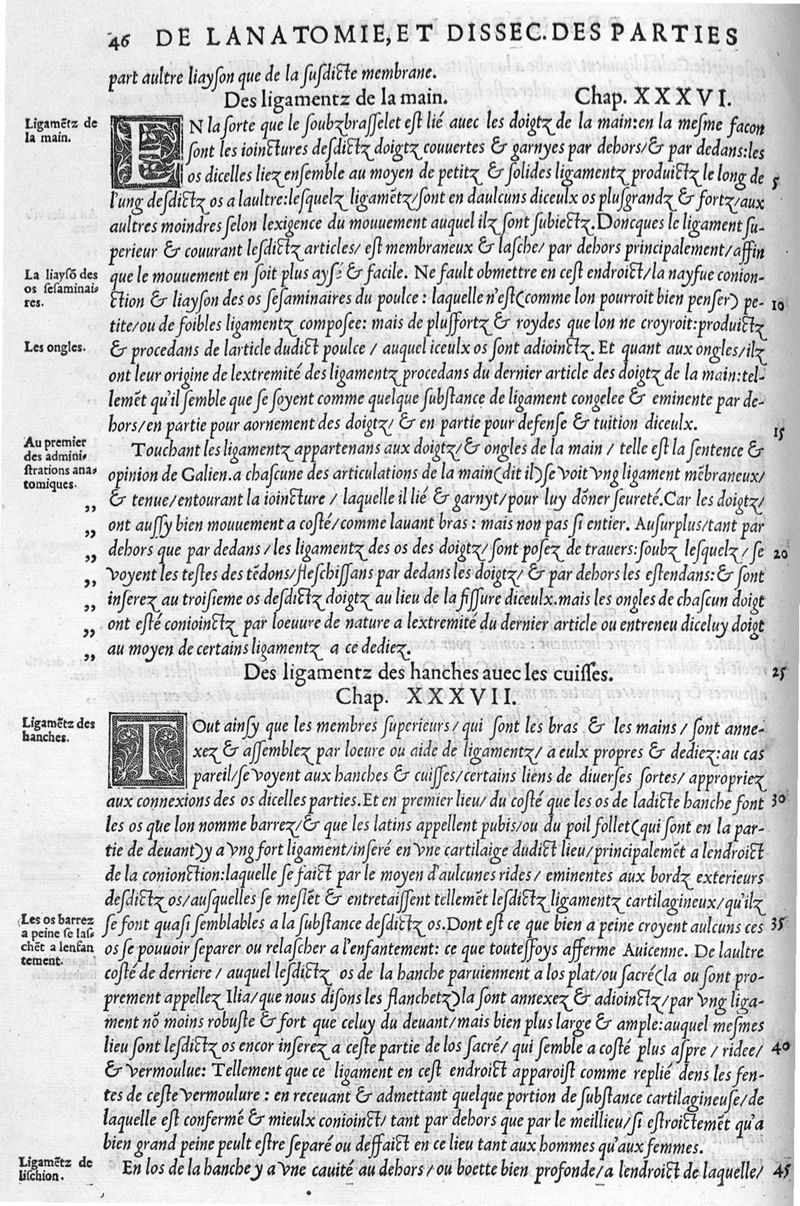 46 DE LANATOMIE, ET DISSEC. DES PARTIES
part aultre liayſon que de la ſuſdicte membrane.
Des ligamentz de la main. Chap. XXXVI.
Ligamētz de
la main.
EN la ſorte que le ſoubzbraſſelet est lié auec les doigtz de la main: en la meſme facon
ſont les ioinctures deſdictz doigtz couuertes & garnyes par dehors/& par dedans: les
os dicelles liez enſemble au moyen de petitz & ſolides ligamentz produictz le long de
5
l'ung deſdictz os a laultre: leſquelz ligamētz/ſont en daulcuns diceulx os pluſgrandz & fortz/aux
aultres moindres ſelon lexigence du mouuement auquel ilz ſont ſubiectz. Doncques le ligament ſu-
perieur & couurant leſdictz articles/ est membraneux & laſche/ par dehors principalement/affin
La liayſō des
os ſeſaminai-
res.
que le mouuement en ſoit plus ayſé & facile. Ne fault obmettre en cest endroict/la nayfue conion-
ction & liayſon des os ſeſaminaires du poulce: laquelle n'est (comme lon pourroit bien penſer) pe-
10
tite/ou de foibles ligamentz compoſee: mais de pluſfortz & roydes que lon ne croyroit: produictz
Les ongles.
& procedans de larticle dudict poulce / auquel iceulx os ſont adioinctz. Et quant aux ongles/ilz
ont leur origine de lextremité des ligamentz procedans du dernier article des doigtz de la main: tel-
lemēt qu'il ſemble que ſe ſoyent comme quelque ſubstance de ligament congelee & eminente par de-
hors/en partie pour aornement des doigtz/ & en partie pour defenſe & tuition diceulx.
15
Au premier
des admini-
ſtrations ana-
tomiques.
Touchant les ligamentz appartenans aux doigtz/& ongles de la main / telle est la ſentence &
opinion de Galien. a chaſcune des articulations de la main (dit il) ſe voit vng ligament mēbraneux/
,, & tenue/entourant la ioincture / laquelle il lié & garnyt/pour luy dōner ſeureté. Car les doigtz/
,, ont auſſy bien mouuement a costé/comme lauant bras: mais non pas ſi entier. Auſurplus/tant par
,, dehors que par dedans/les ligamentz des os des doigtz/ſont poſez de trauers: ſoubz leſquelz/ ſe
20
,, voyent les testes des tēdons/fleſchiſſans par dedans les doigtz/ & par dehors les estendans: & ſont
,, inſerez au troiſieme os deſdictz doigtz au lieu de la fiſſure diceulx. mais les ongles de chaſcun doigt
,, ont esté conioinctz par loeuure de nature a lextremité du dernier article ou entreneu diceluy doigt
,, au moyen de certains ligamentz a ce dediez.
Des ligamentz des hanches auec les cuiſſes.
25
Chap. XXXVII.
Ligamētz des
hanches.
TOut ainſy que les membres ſuperieurs/ qui ſont les bras & les mains / ſont anne-
xez & aſſemblez par loeure ou aide de ligamentz/ a eulx propres & dediez: au cas
pareil/ſe voyent aux hanches & cuiſſes/certains liens de diuerſes ſortes/ appropriez
aux connexions des os dicelles parties. Et en premier lieu/ du costé que les os de ladicte hanche font
30
les os que lon nomme barrez/& que les latins appellent pubis/ou du poil follet (qui ſont en la par-
tie de deuant) y a vng fort ligament/inſeré en vne cartilaige dudict lieu/principalemēt a lendroict
de la conionction: laquelle ſe faict par le moyen d'aulcunes rides/ eminentes aux bordz exterieurs
deſdictz os/auſquelles ſe meſlēt & entretaiſſent tellemēt leſdictz ligamentz cartilagineux/qu'ilz
Les os barrez
a peine ſe laſ-
chēt a lenfan
tement.
ſe font quaſi ſemblables a la ſubstance deſdictz os. Dont est ce que bien a peine croyent aulcuns ces
35
os ſe pouuoir ſeparer ou relaſcher a l'enfantement: ce que touteſſoys afferme Auicenne. De laultre
costé de derriere / auquel leſdictz os de la hanche paruiennent a los plat/ou ſacré (la ou ſont pro-
prement appellez Ilia/que nous diſons les flanchetz) la ſont annexez & adioinctz/par vng liga-
ment nō moins robuste & fort que celuy du deuant/mais bien plus large & ample: auquel meſmes
lieu ſont leſdictz os encor inſerez a ceste partie de los ſacré/ qui ſemble a costé plus aſpre / ridee/
40
& vermoulue: Tellement que ce ligament en cest endroict apparoist comme replié dens les fen-
tes de ceste vermoulure: en receuant & admettant quelque portion de ſubstance cartilagineuſe/de
laquelle est confermé & mieulx conioinct/ tant par dehors que par le meillieu/ſi estroictemēt qu'a
bien grand peine peult estre ſeparé ou deffaict en ce lieu tant aux hommes qu'aux femmes.
Ligamētz de
liſchion.
En los de la hanche y a vne cauité au dehors/ ou boette bien profonde/a lendroict de laquelle/
45